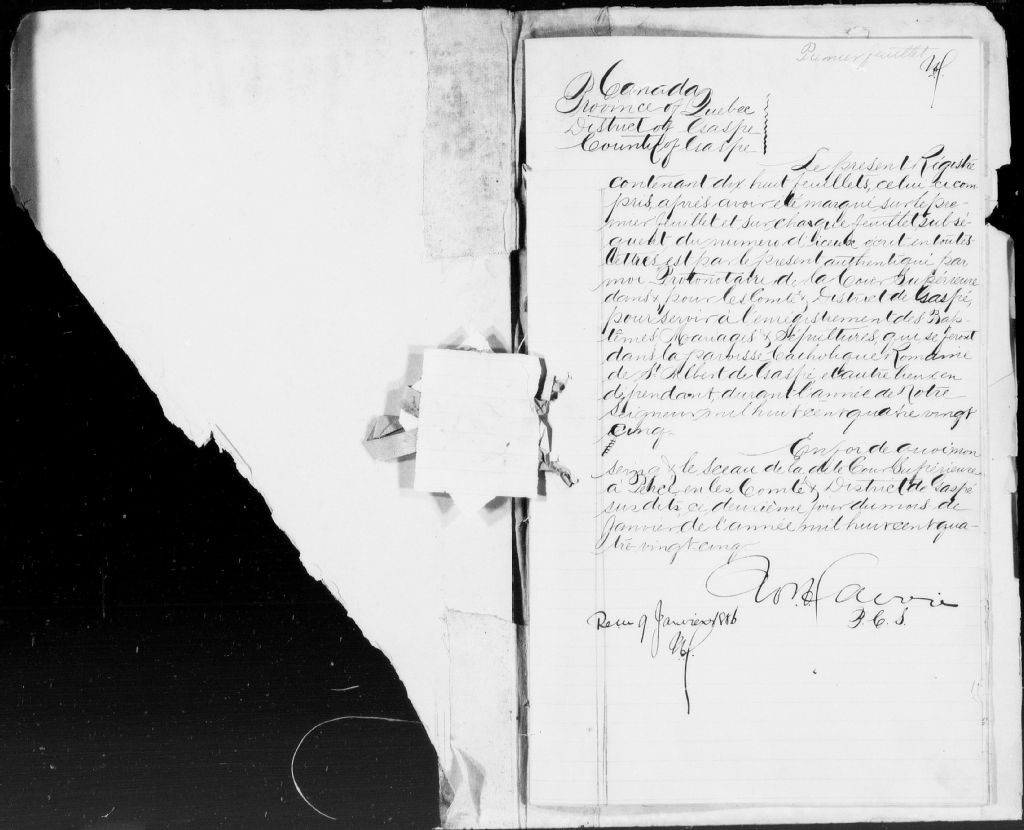 Premier feuillet
Canada
Province of Quebec
District of Gaspe
County of Gaspe
Le present Registre
contenant dix huit feuillets, celui ci com
pris, après avoir été marqué sur le pre-
mier feuillet et sur chaque feuillet subsé-
quent du numero d'iceux écrit en toutes
lettres est par le present authentiqué par
moi Protonotaire de la Cour Supérieure
dans & pour les Comté & District de Gaspé,
pour servir à l'enregistrement des Bap-
têmes Mariages & Sépultures, qui se feront
dans la paroisse Catholique Romaine
de St Albert de Gaspé, et autre lieux en
dépendant, durant l'année de Notre
Seigneur mil huit cent quatre vingt
cinq.
En foi de quoi mon
seing & le sceau de la dite Cour Supérieure
à Percé, en les Comté & District de Gaspé
susdits, ce deuxième jour du mois de
Janvier de l'année mil huit cent qua-
tre-vingt cinq
P. C. S.
Recu 9 Janvier 1886